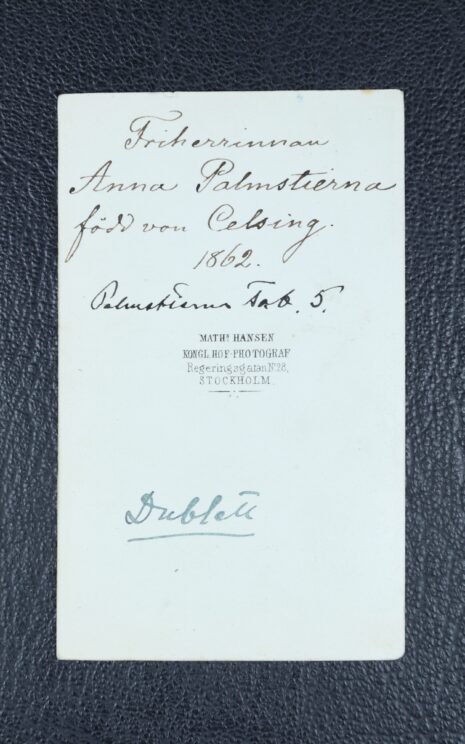 Friherrinnan
Anna Palmstierna
född von Celsing.
1862.
Palmstierna Tab. 5.
MATHS HANSEN
KONGL HOF-PHOTOGRAF
Regeringsgatan No 28,
STOCKHOLM.
Dublett